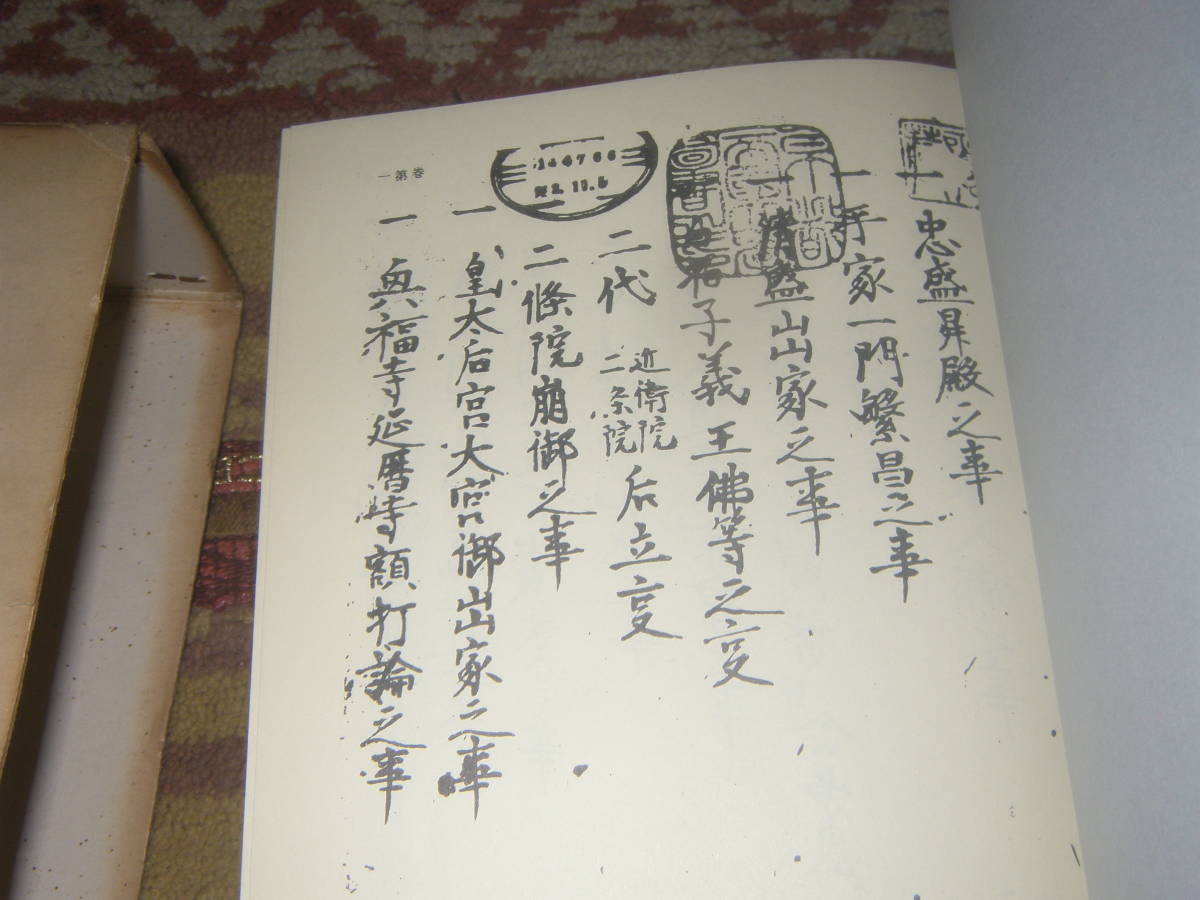 一忠盛昇殿之事
一平家一門繁昌之事
一清盛出家之事
子義王佛等之事
一二代近衛院二条院后立事
一二條院崩御之事
一皇太后宮大宮御出家之事
一興福寺延暦寺額打論之事
第一巻
144766
11.5